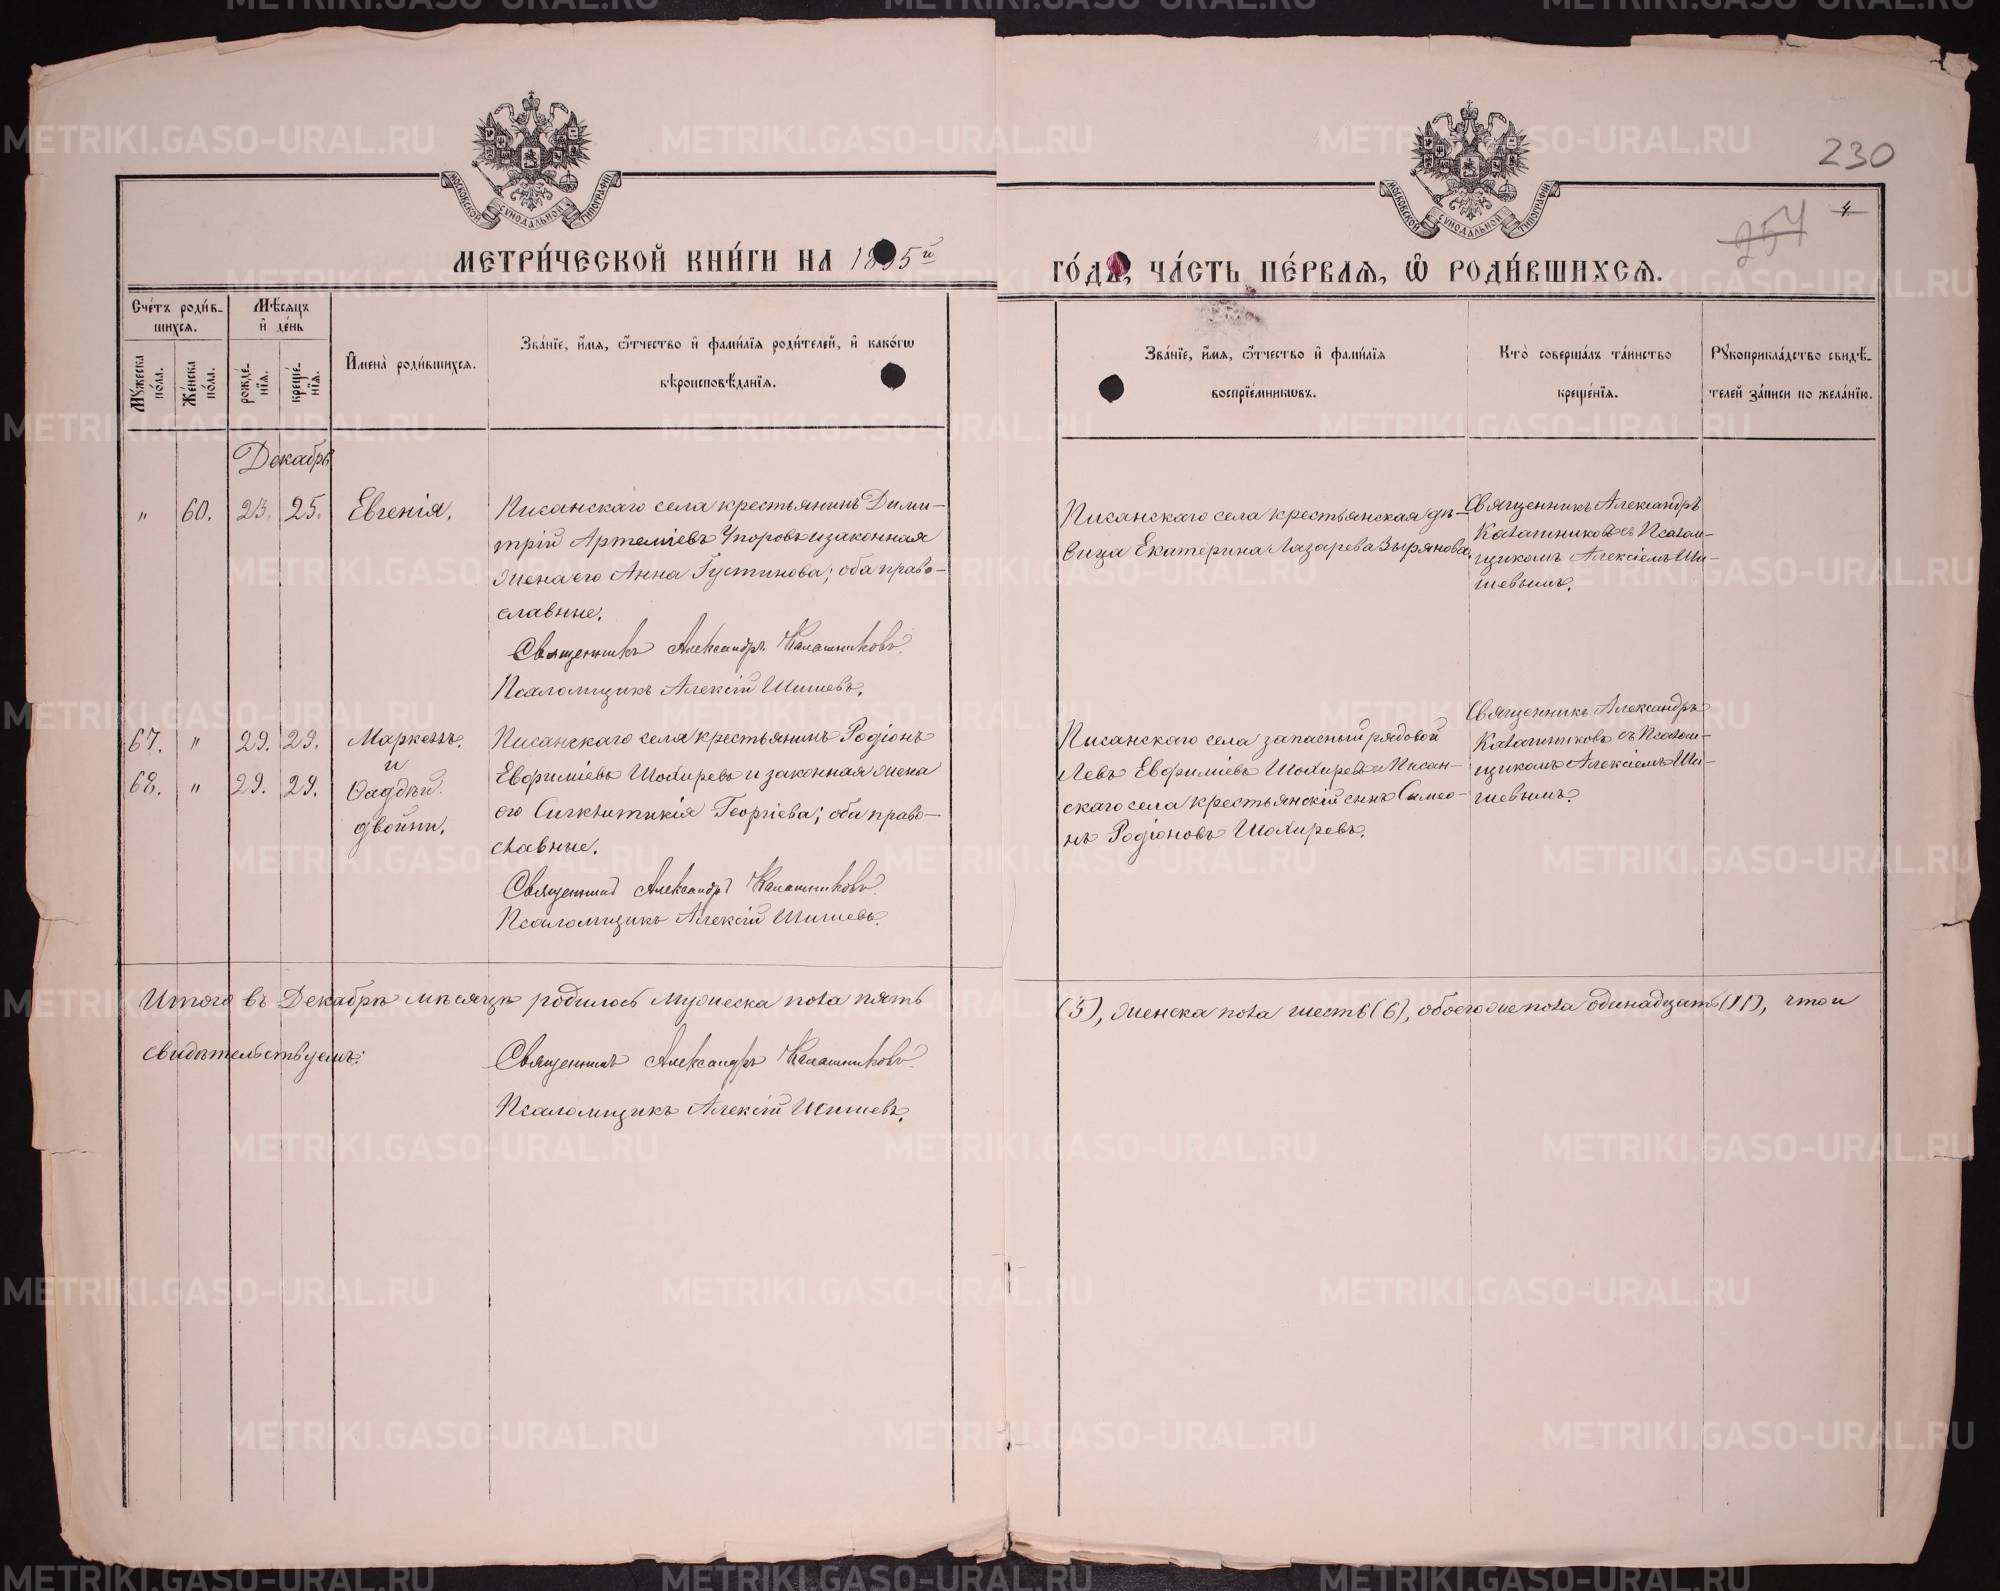 230
МОСКОВСКОЙ СѴНОДАЛЬНОЙ ТИПОГРАФІИ
МОСКОВСКОЙ СѴНОДАЛЬНОЙ ТИПОГРАФІИ
4
254
МЕТРИ́ЧЕСКОЙ КНИ́ГИ НА 1895й
ГО́ДЪ, ЧА́СТЬ ПЕ́РВАЯ, Ѿ РОДИ́ВШИХСЯ.
Сче́тъ роди́в-
шихся.
Мѣ́сяцъ
и҆ де́нь
Му́жеска
по́ла.
Же́нска
по́ла.
рожде́-
нїя.
креще́-
нїя.
И҆мена̀ роди́вшихся.
Зва́нїе, и҆́мя, ѻ҆́тчество и҆ фами́лїя роди́телей, и҆ како́гѡ
вѣроисповѣ́данїя.
Зва́нїе, и҆́мя, ѻ҆́тчество и҆ фами́лїя
воспрїе́мникѡвъ.
Кто̀ соверша́лъ та́инство
креще́нїя.
Рꙋкоприкла́дство свидѣ́-
телей за́писи по жела́нїю.
Декабрь
" 60. 23. 25. Евгенія.
Писанскаго села крестьянинъ Дими-
трій Артеміевъ Упоровъ и законная
жена его Анна Густинова; оба право-
славные.
Священникъ Александръ Калашниковъ.
Псаломщикъ Алексій Шишевъ.
Писанскаго села крестьянская дѣ-
вица Екатерина Лазарева Зырянова.
Священникъ Александръ
Калашниковъ съ Псалом-
щикомъ Алексіемъ Ши-
шевымъ.
67. " 29. 29. Маркеллъ.
и
68. " 29. 29. Ѳаддѣй.
двойни.
Писанскаго села крестьянинъ Родіонъ
Евфиміевъ Шохиревъ и законная жена
его Сигклитикія Георгіева; оба право-
славные.
Священникъ Александръ Калашниковъ.
Псаломщикъ Алексій Шишевъ.
Писанскаго села запасный рядовой
Левъ Евфиміевъ Шохиревъ и Писан-
скаго села крестьянскій сынъ Симео-
нъ Родіоновъ Шохиревъ.
Священникъ Александръ
Калашниковъ съ Псалом-
щикомъ Алексіемъ Ши-
шевымъ.
Итого въ Декабрѣ мѣсяцѣ родилось мужеска пола пять
(5), женска пола шесть (6), обоего же пола одинадцать (11), что и
свидѣтельствуемъ:
Священникъ Александръ Калашниковъ.
Псаломщикъ Алексій Шишевъ.
METRIKI.GASO-URAL.RU